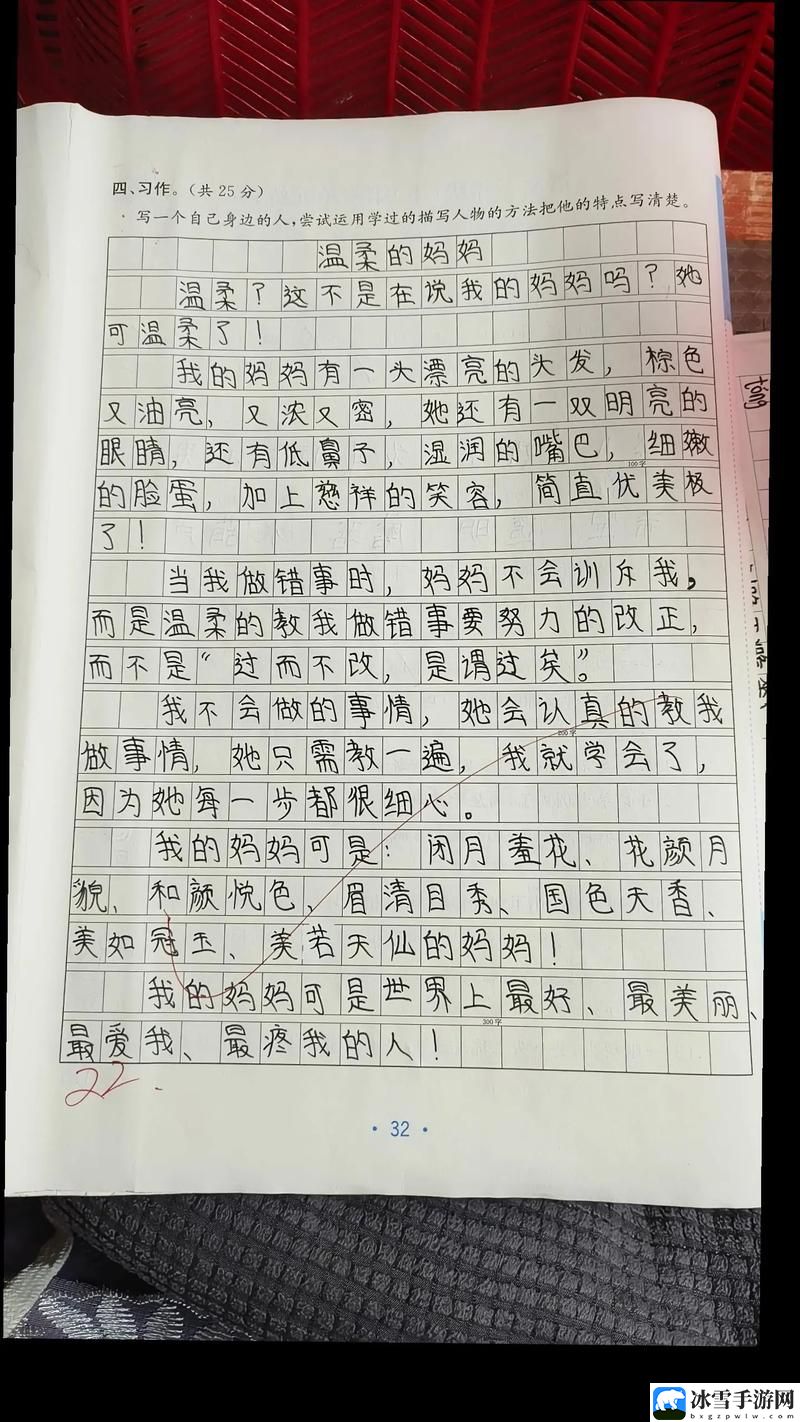 四、习作。(共25分)
写一个自己身边的人,尝试运用学过的描写人物的方法把他的特点写清楚。
温柔的妈妈
温柔?这不是在说我的妈妈吗?她
可温柔了!
我的妈妈有一头漂亮的头发,棕色
又油亮,又浓又密,她还有一双明亮的
眼睛,还有低鼻子,湿润的嘴巴,细嫩
100字
的脸蛋,加上慈祥的笑容,简直优美极
了!
当我做错事时,妈妈不会训斥我,
而是温柔的教我做错事要努力的改正,
而不是“过而不改,是谓过矣”。
我不会做的事情,她会认真的教我
200字
做事情,她只需教一遍,我就学会了,
因为她每一步都很细心。
我的妈妈可是:闭月羞花、花颜月
貌、和颜悦色、眉清目秀、国色天香、
美如冠玉、美若天仙的妈妈!
我的妈妈可是世界上最好、最美丽、
300字
最爱我、最疼我的人!
22
·32·
冰雪手游网
bxgzpwlw.com